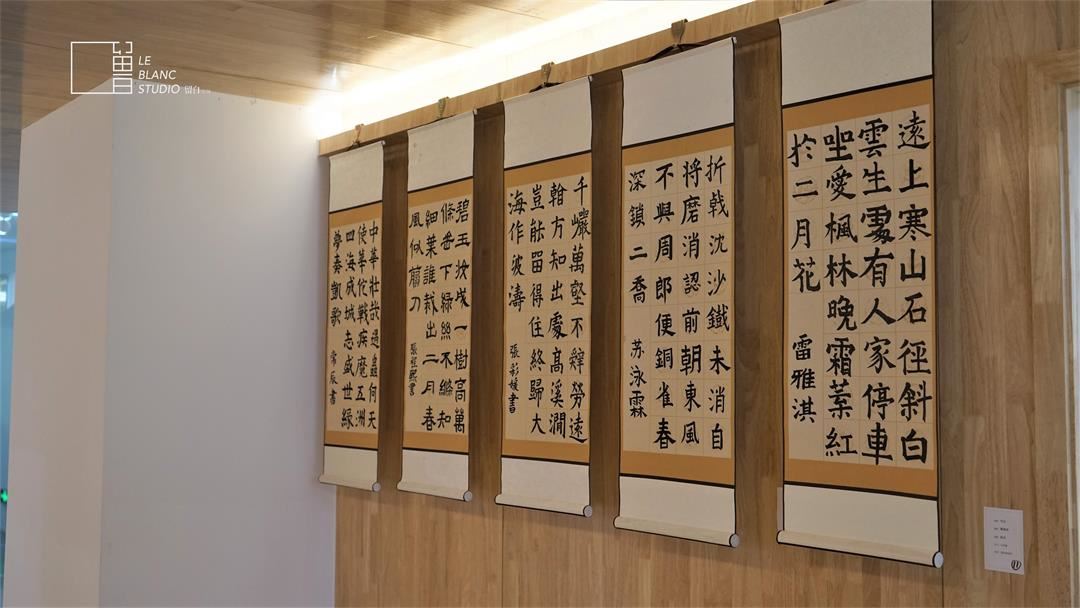 留白
LE
BLANC
STUDIO 留白
遠上寒山石徑斜白
雲生處有人家停車
坐愛楓林晚霜葉紅
於二月花
雷雅淇
折戟沈沙鐵未消自
將磨消認前朝東風
不與周郎便銅雀春
深鎖二喬
苏泳霖
千巖萬壑不辤勞遠
看方知出處高溪澗
豈能留得住終歸大
海作波濤
張彩媛書
碧玉妝成一樹高萬
條垂下綠絲不絛知
細葉誰裁出二月春
風似剪刀
張熙書
中華壯哉過蟲何天
使華佗戰疾魔五洲
四海成城志盛世緣
夢奏凱歌
常辰書